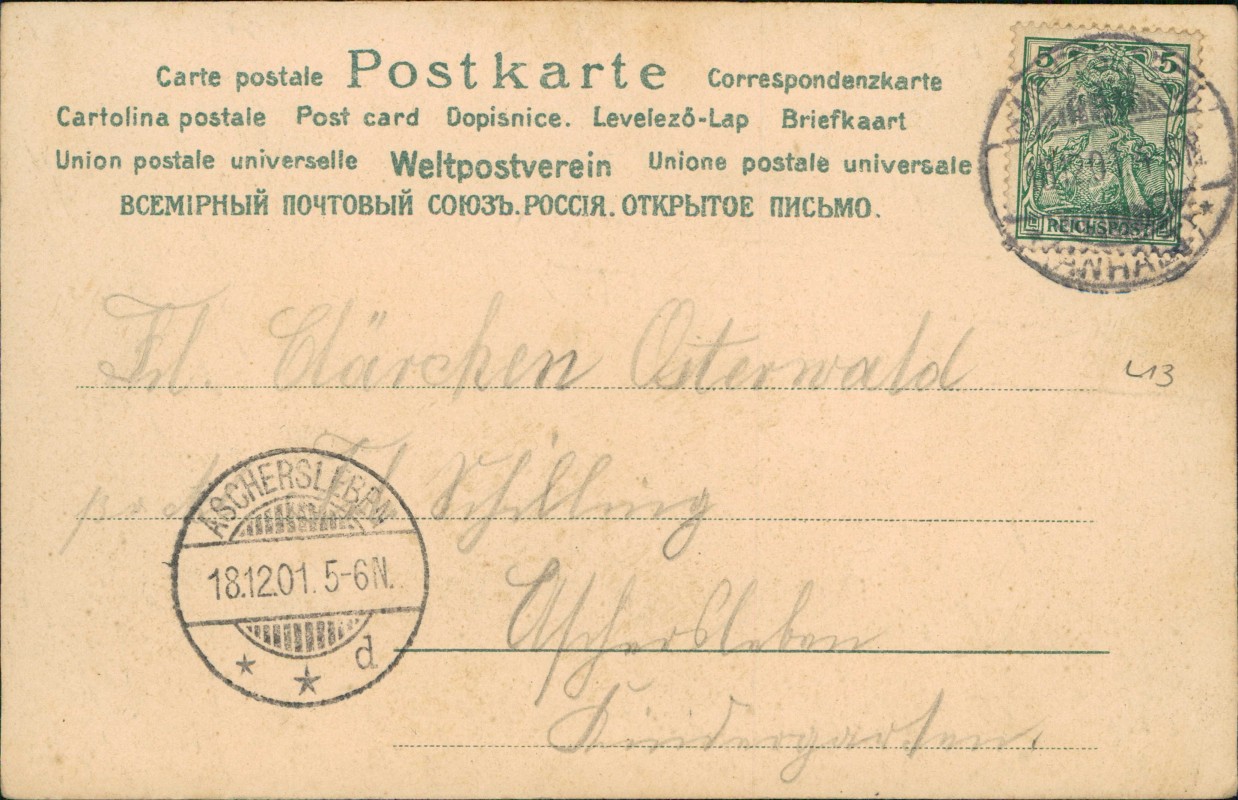 Carte postale Postkarte Correspondenzkarte
Cartolina postale Post card Dopisnice. Levelező-Lap Briefkaart
Union postale universelle Weltpostverein Unione postale universale
ВСЕМІРНЫЙ ПОЧТОВЫЙ СОЮЗЪ. РОССІЯ. ОТКРЫТОЕ ПИСЬМО.
5 5
REICHSPOST
(ANHALT)
Frl. Clärchen Osterwald
L13
Frl. Schilling
ASCHERSLEBEN
18.12.01. 5-6N.
d
Aschersleben
Kindergarten.